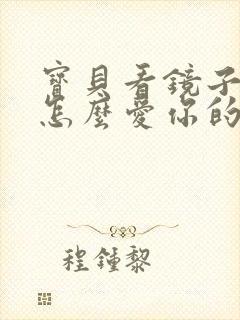 寶貝看鏡子
怎麼愛你的
程鍾黎